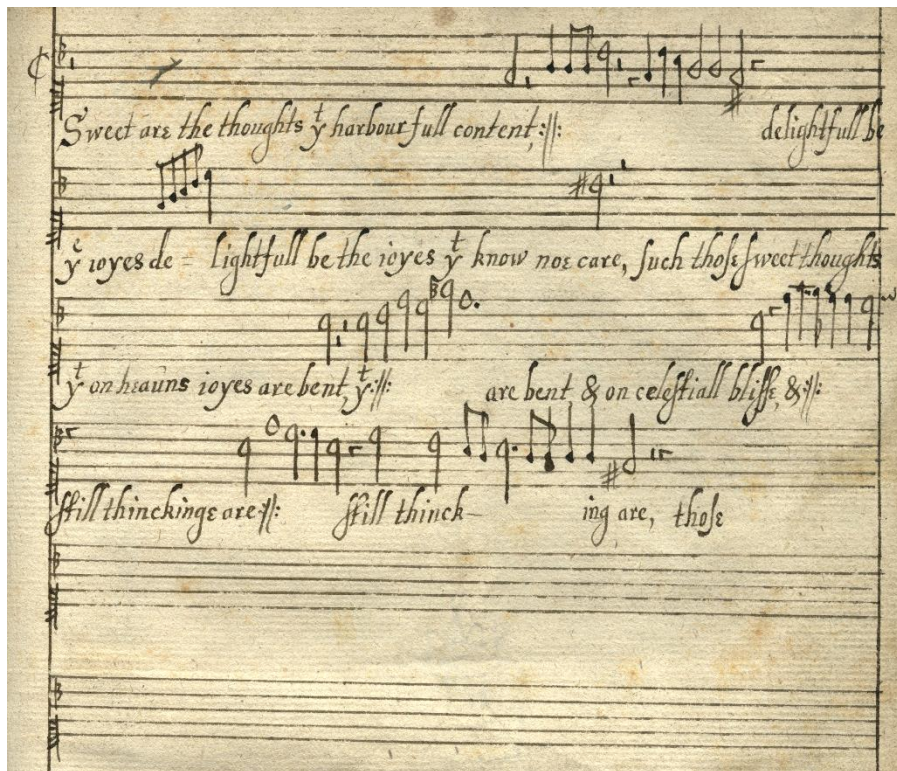 Sweet are the thoughts yᵗ harbour full content, :||: delightfull be
yᵉ ioyes de = lightfull be the ioyes yᵗ know noe care, such those sweet thoughts
yᵗ on heauns ioyes are bent, yᵗ :||: are bent & on celestiall blisse, & :||:
still thinckinge are :||: still thinck- ing are, those